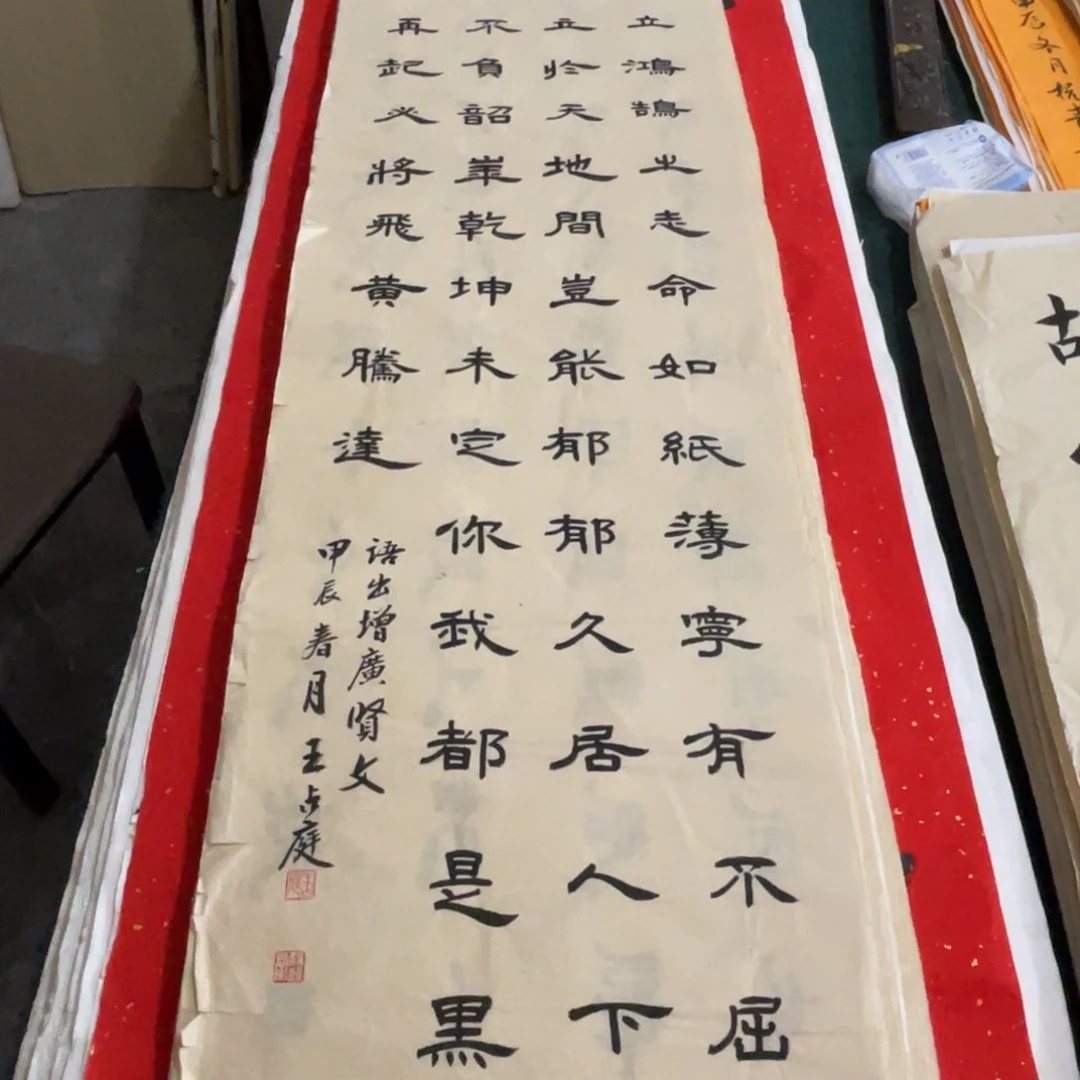 立鴻鵠之志命如紙薄寧有不屈
立於天地間豈能郁郁久居人下
不負韶華乾坤未定你我都是黑
再起必將飛黃騰達
語出增廣賢文
甲辰春月王占庭
辰冬月